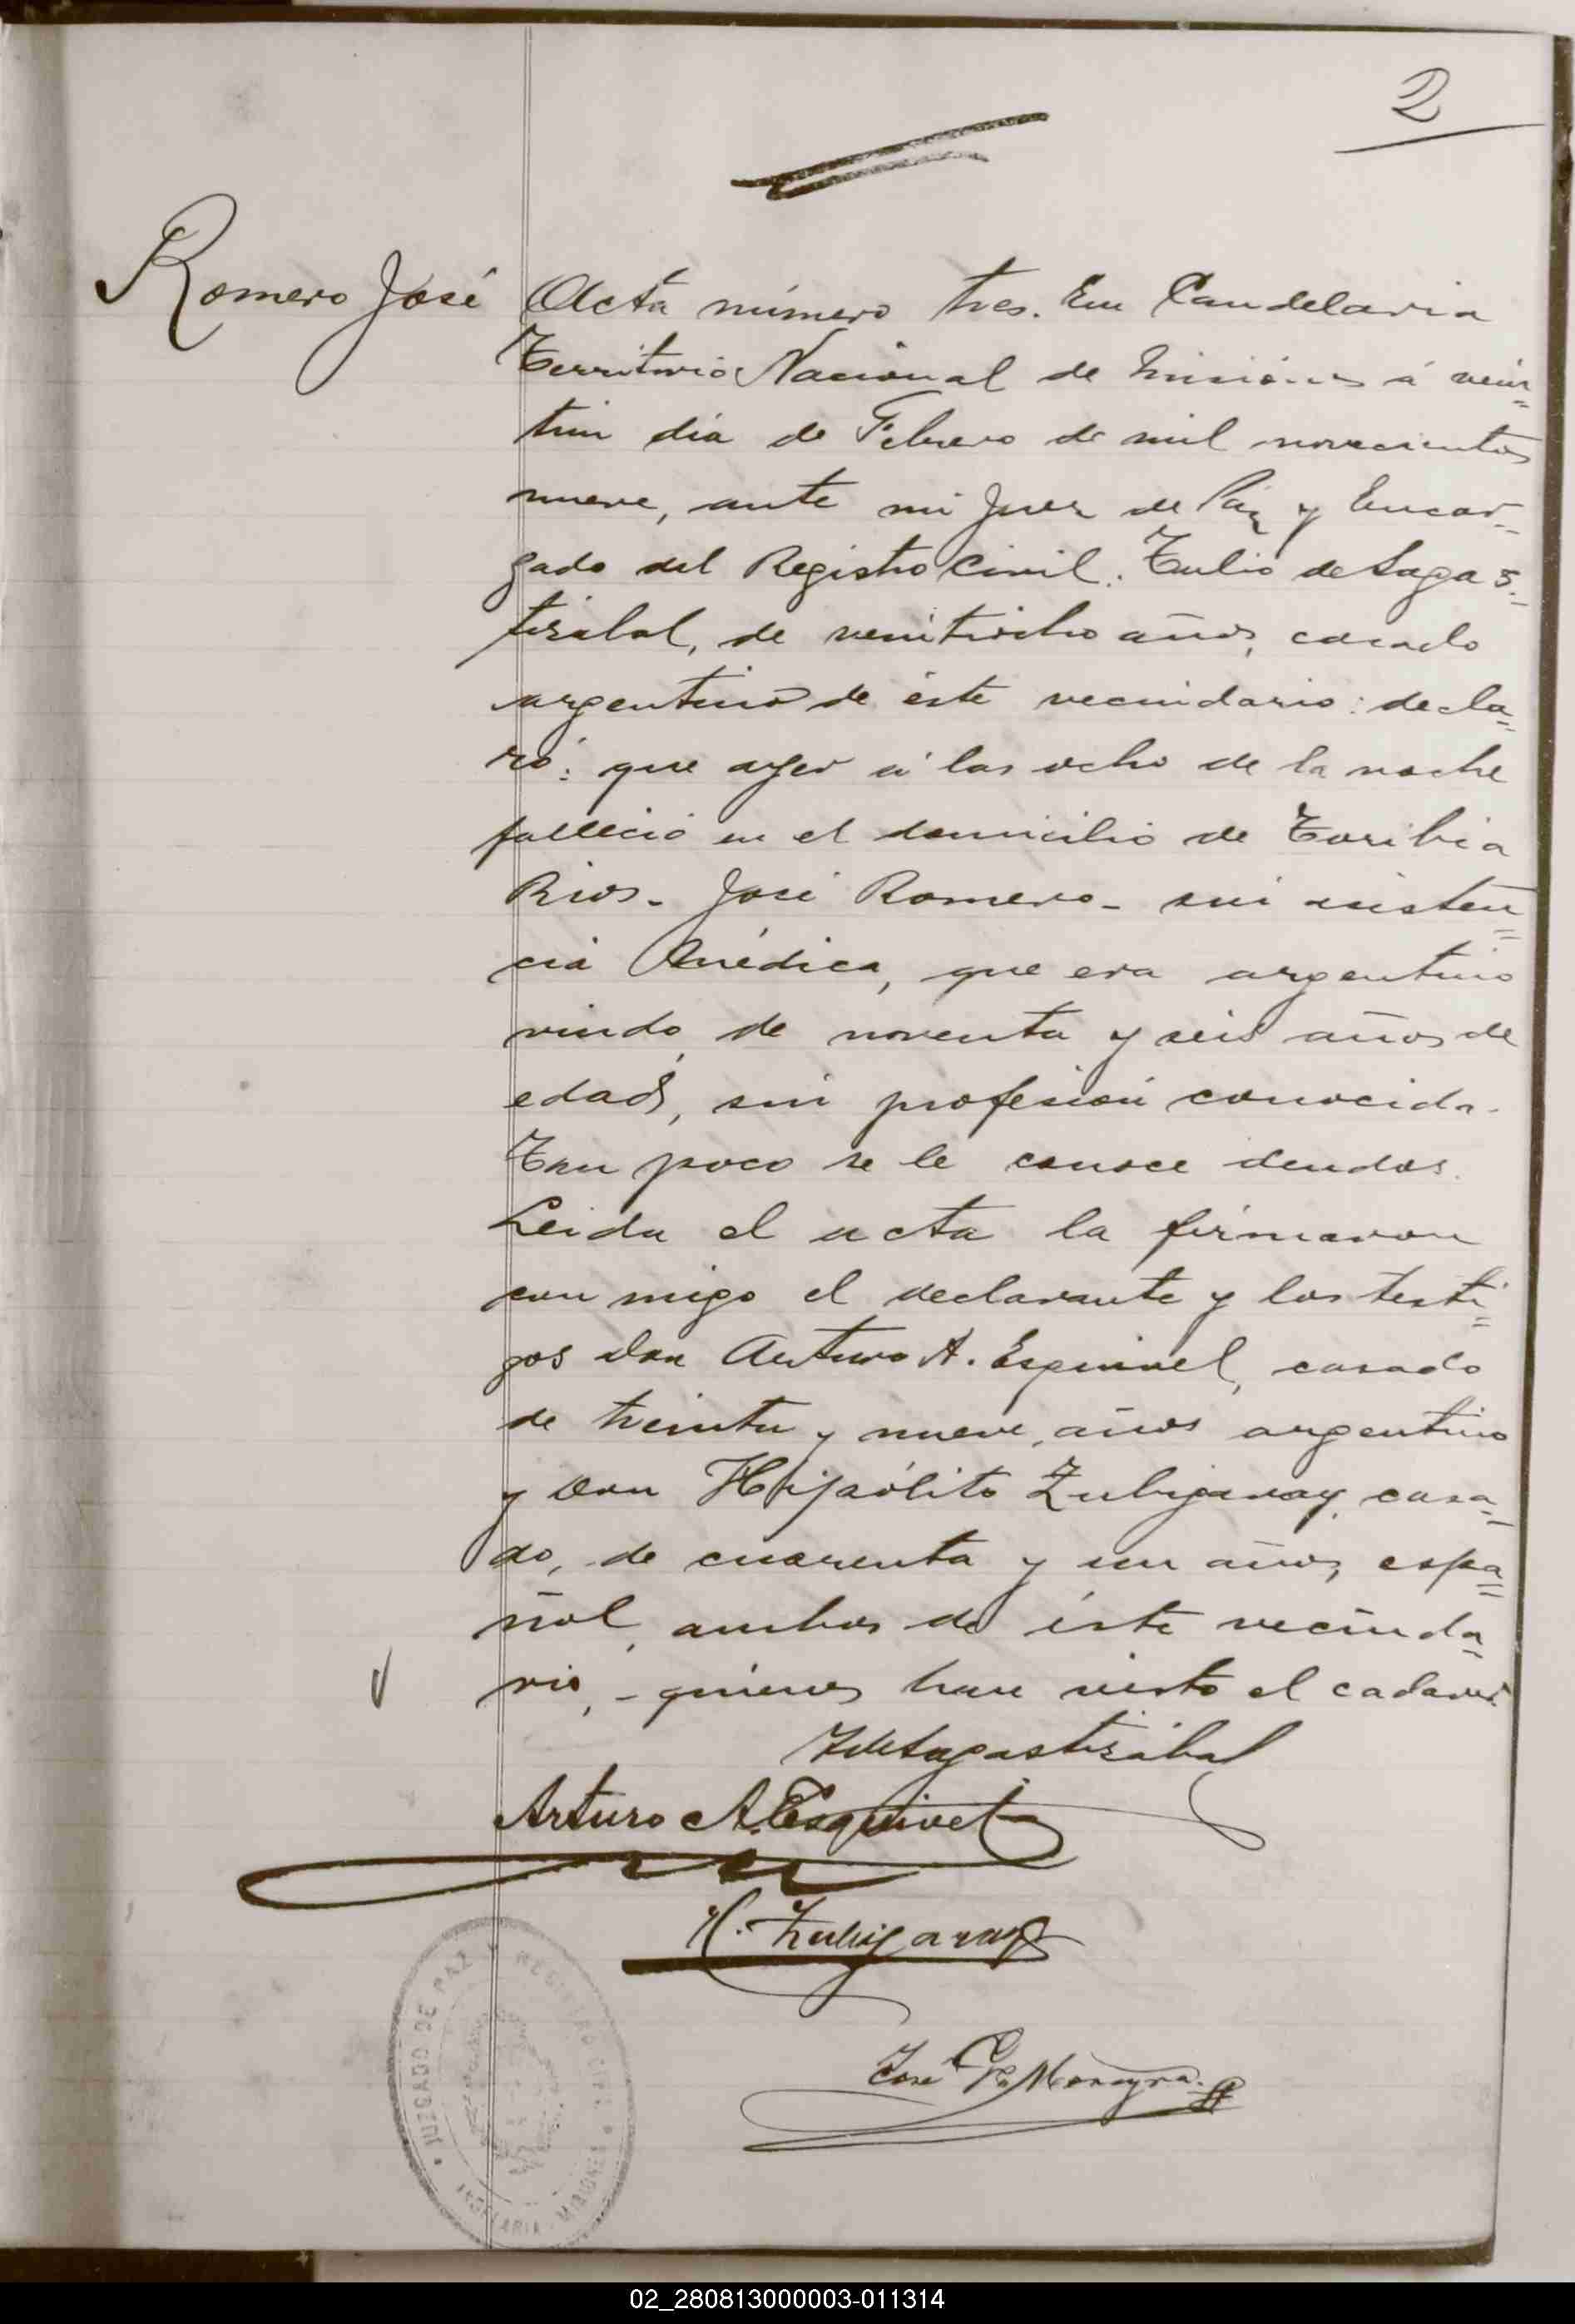 2
Romero José
Acta número tres. En Candelaria
Territorio Nacional de Misiones á vein=
tiun dia de Febrero de mil novecientos
nueve, ante mi Juez de Paz y Encar=
gado del Registro Civil: Tulio de Sagas=
tizabal, de veintiocho años, casado
argentino de éste vecindario: decla=
ró: que ayer á las ocho de la noche
falleció en el domicilio de Toribia
Rios- José Romero- sin asisten=
cia médica, que era argentino
viudo, de noventa y seis años de
edad, sin profesión conocida.
Tan poco se le conoce deudos.
Leida el acta la firmaron
con migo el declarante y los testi=
gos don Arturo A. Esquivel, casado
de treinta y nueve, años argentino
y don Hipólito Zubigaray, casa=
do, de cuarenta y un años, espa=
ñol, ambos de éste vecinda=
rio, - quienes han visto el cadaver.
T de Sagastizábal
Arturo A. Esquivel
H. Zubigaray
José Moreyra
JUZGADO DE PAZ Y REGISTRO CIVIL
CANDELARIA - MISIONES
02_280813000003-011314